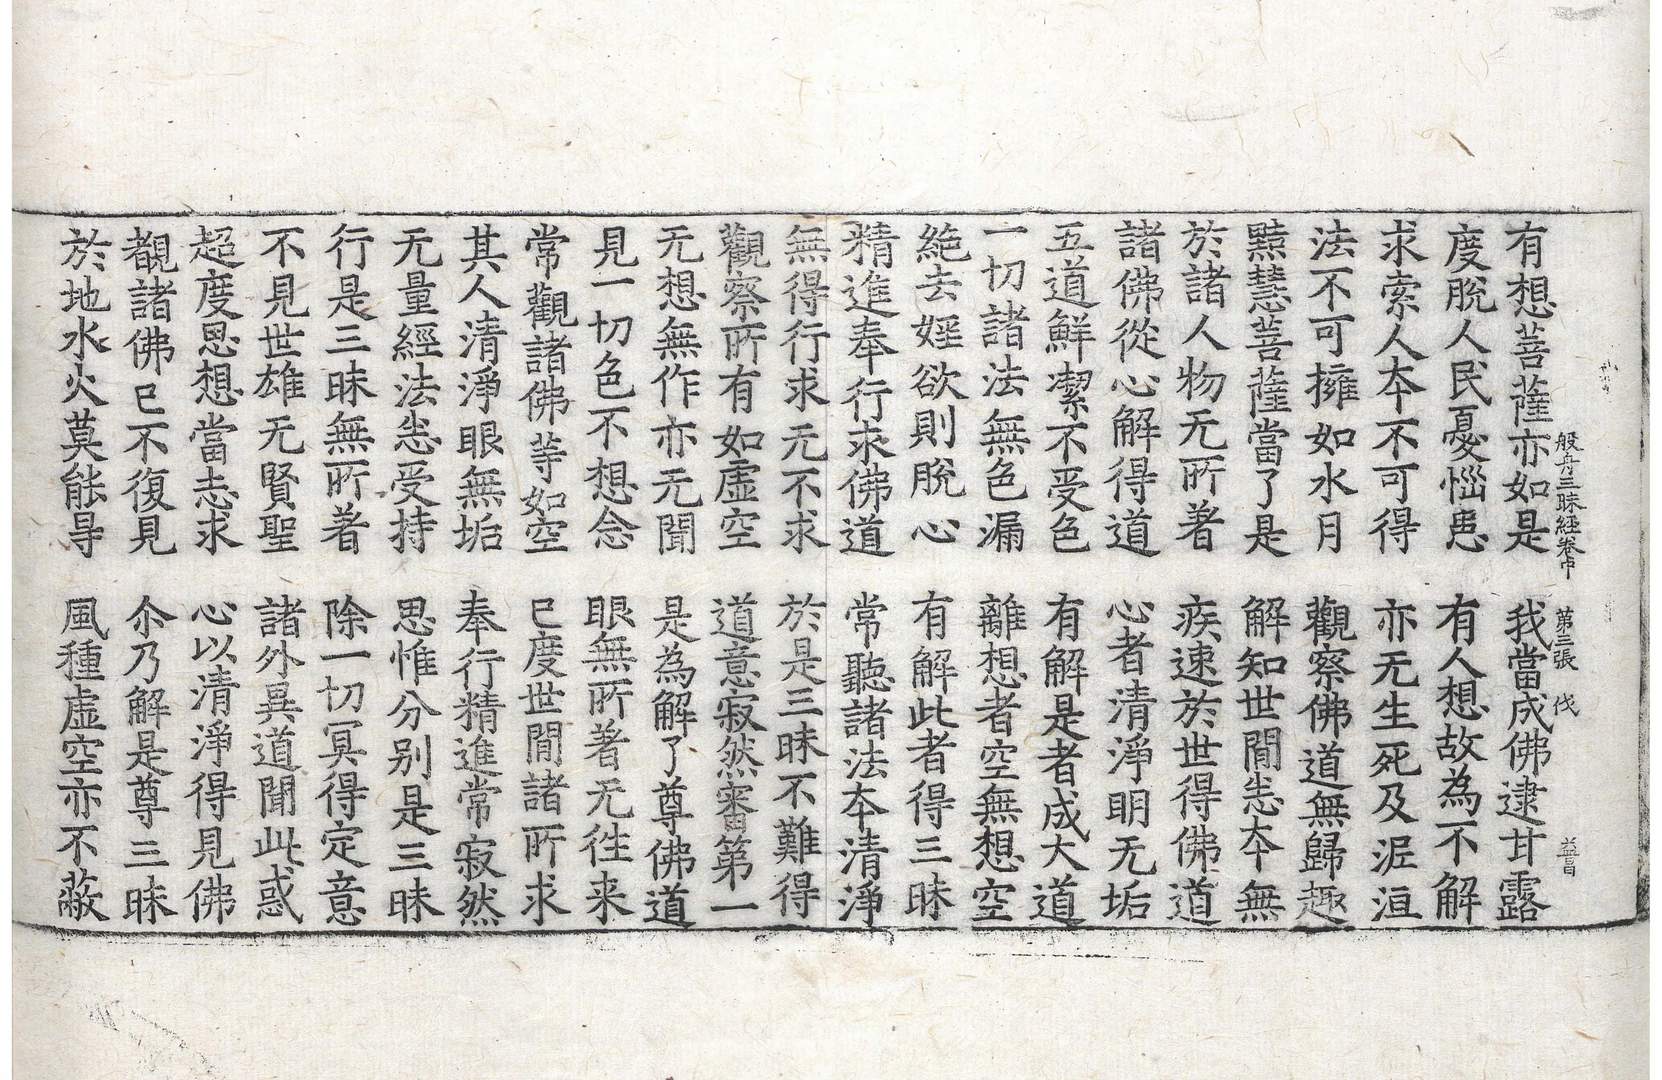 般舟三昧經卷中 第三張 伐
有想菩薩亦如是 我當成佛逮甘露
度脫人民憂惱患 有人想故為不解
求索人夲不可得 亦无生死及泥洹
法不可擁如水月 觀察佛道無歸趣
黠慧菩薩當了是 解知世閒悉夲無
於諸人物无所著 疾速於世得佛道
諸佛從心解得道 心者清淨明无垢
五道鮮潔不受色 有解是者成大道
一切諸法無色漏 離想者空無想空
絕去婬欲則脫心 有解此者得三昧
精進奉行求佛道 常聽諸法夲清淨
無得行求无不求 於是三昧不難得
觀察所有如虛空 道意寂然審第一
无想無作亦无聞 是為解了尊佛道
見一切色不想念 眼無所著无往来
常觀諸佛等如空 已度世閒諸所求
其人清淨眼無垢 奉行精進常寂然
无量經法悉受持 思惟分別是三昧
行是三昧無所著 除一切冥得定意
不見世雄无賢聖 諸外異道聞此惑
超度思想當志求 心以清淨得見佛
覩諸佛已不復見 尒乃解是尊三昧
於地水火莫能㝵 風種虛空亦不蔽